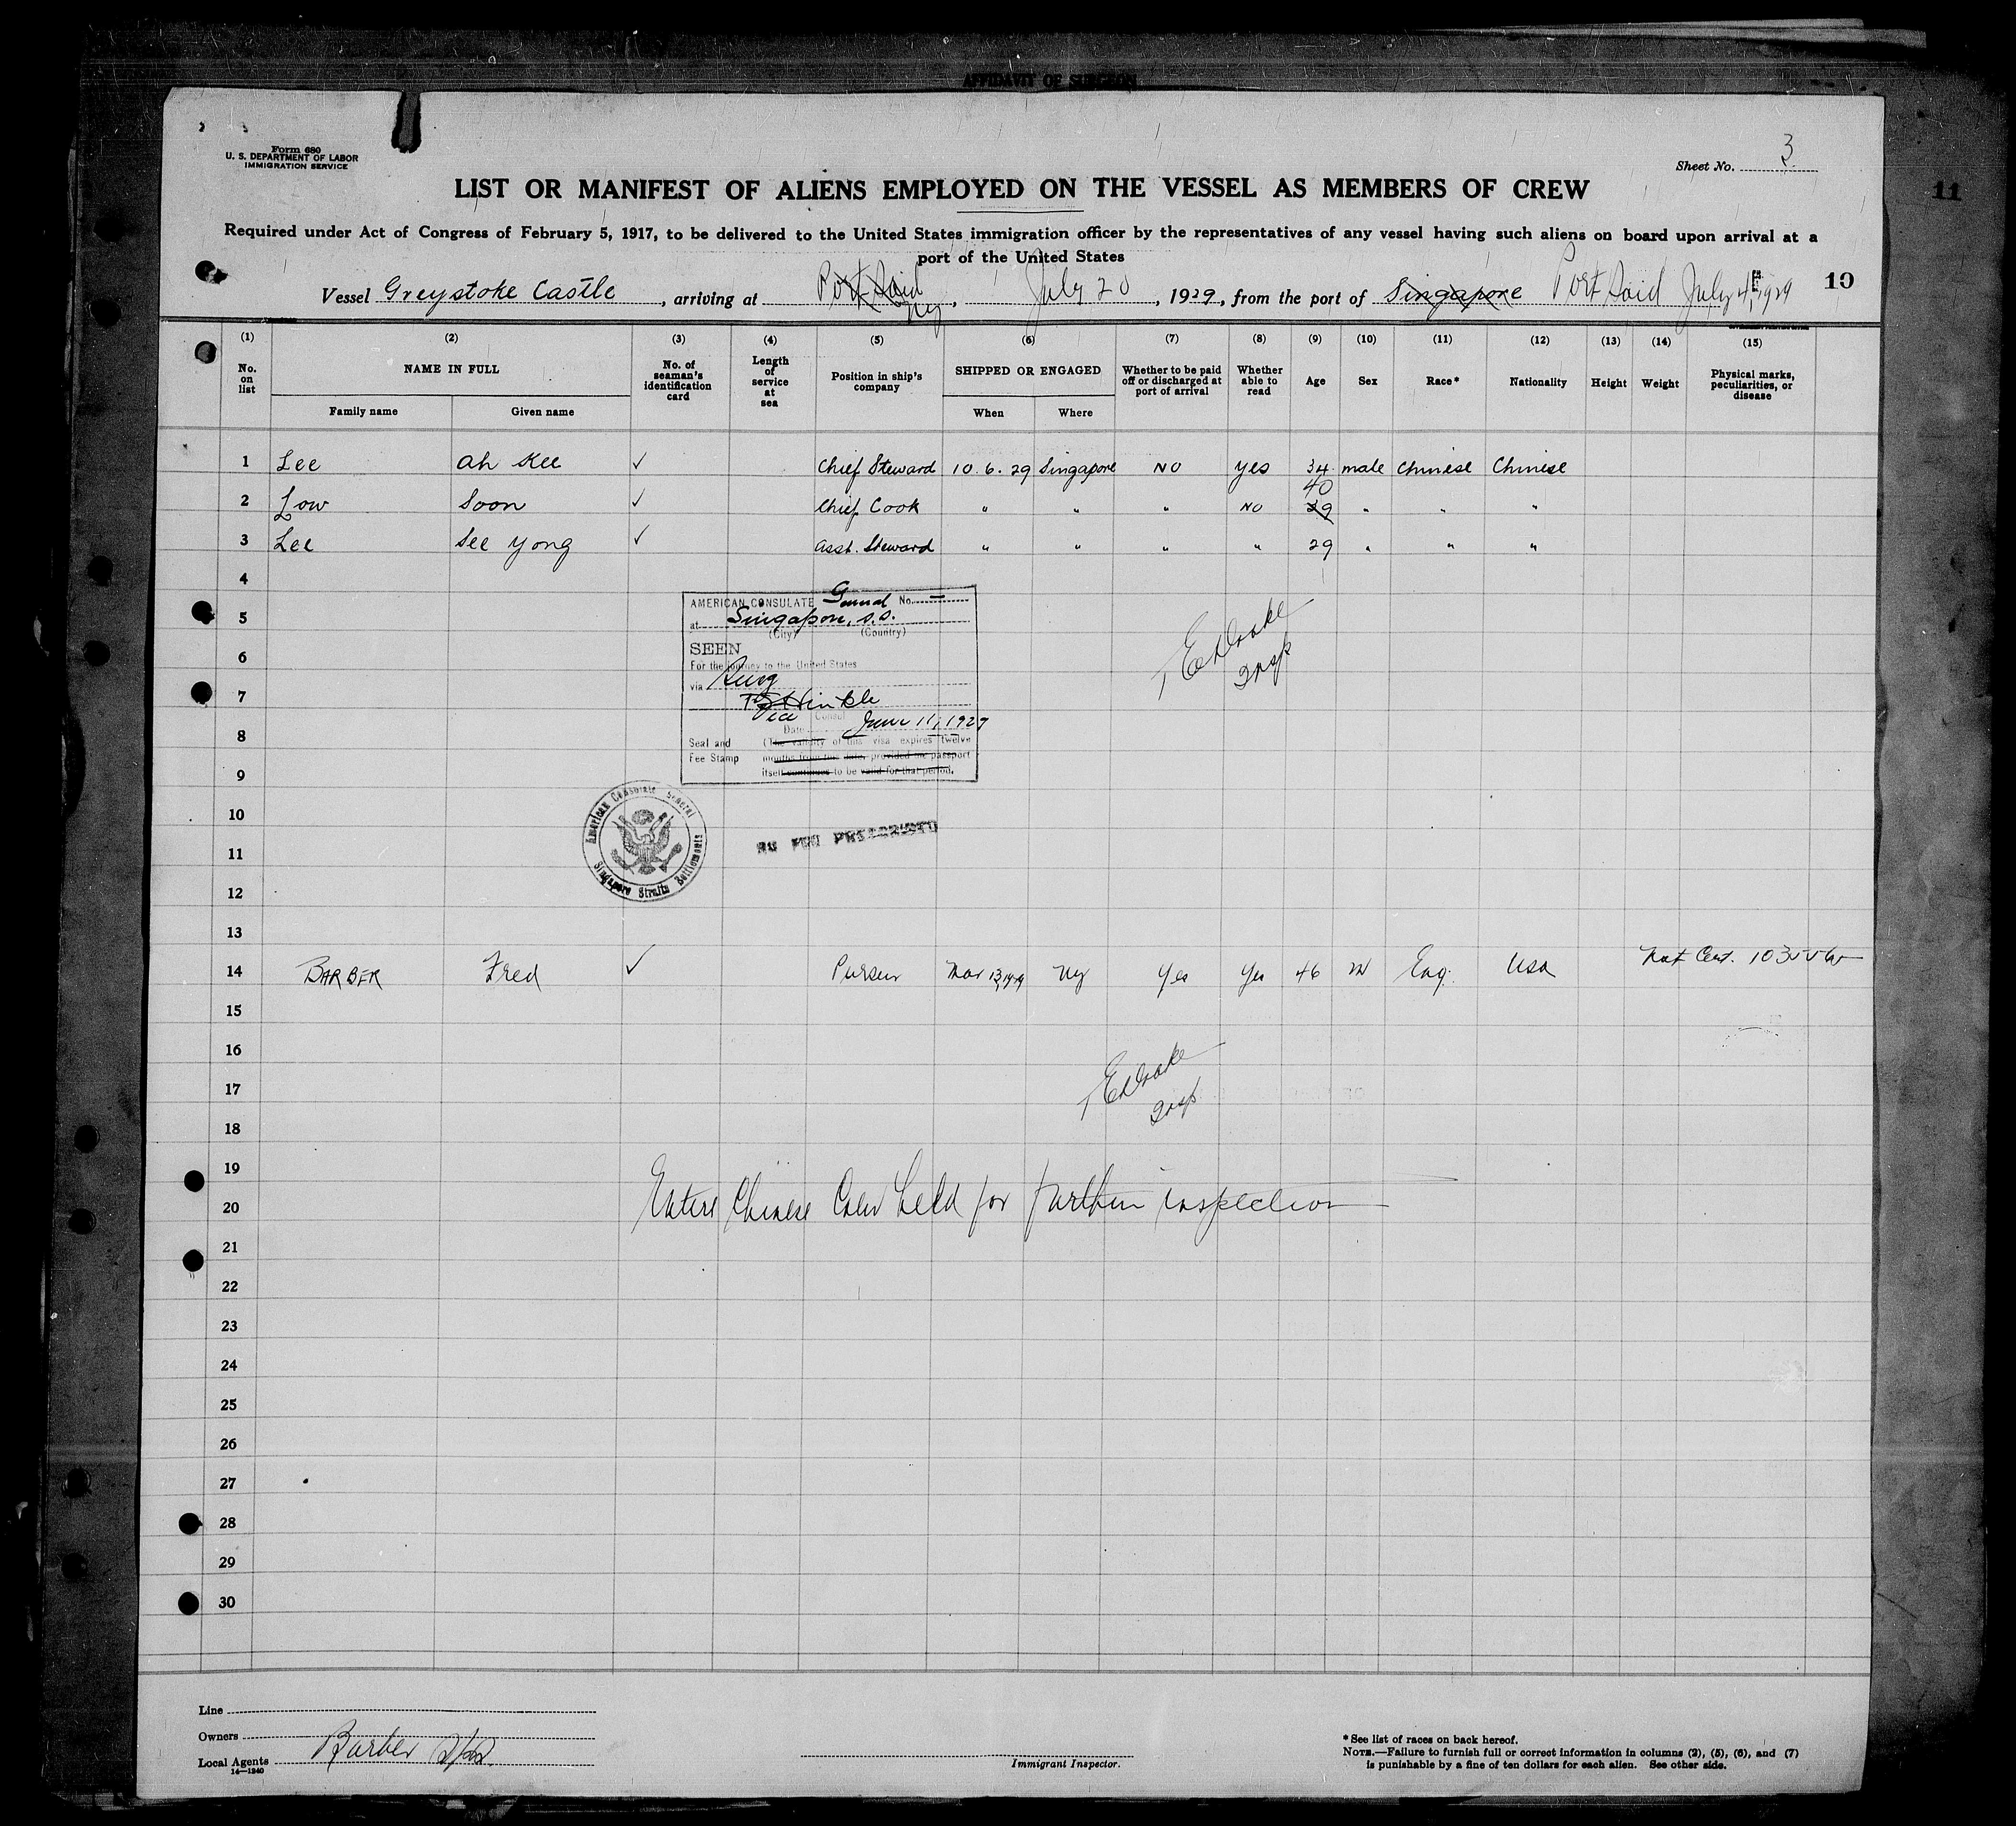 AFFIDAVIT OF SURGEON
Form 680
U. S. DEPARTMENT OF LABOR
IMMIGRATION SERVICE
Sheet No. 3
11
LIST OR MANIFEST OF ALIENS EMPLOYED ON THE VESSEL AS MEMBERS OF CREW
Required under Act of Congress of February 5, 1917, to be delivered to the United States immigration officer by the representatives of any vessel having such aliens on board upon arrival at a
port of the United States
Vessel Greystoke Castle, arriving at Port Said Ny, July 20, 1929, from the port of Singapore Port Said July 4, 1929
10
(1) (2) (3) (4) (5) (6) (7) (8) (9) (10) (11) (12) (13) (14) (15)
No. on list
NAME IN FULL
Family name Given name
No. of seaman's identification card
Length of service at sea
Position in ship's company
SHIPPED OR ENGAGED
When Where
Whether to be paid off or discharged at port of arrival
Whether able to read
Age
Sex
Race*
Nationality
Height
Weight
Physical marks, peculiarities, or disease
1 Lee Ah Kee ✓ Chief Steward 10.6.29 Singapore NO Yes 34 male Chinese Chinese
2 Low Soon ✓ Chief Cook " " " NO 29 40 " " "
3 Lee See Yong ✓ Asst. Steward " " " " 29 " " "
4
5
6
7
8
9
10
11
12
13
AMERICAN CONSULATE General No. —
at Singapore, S.S.
(City) (Country)
SEEN
For the journey to the United States
via
Hinkle
Vice Consul
Date June 11, 1929
Seal and Fee Stamp
(The validity of this visa expires twelve
months from this date, provided the passport
itself continues to be valid for that period.
American Consulate General
Singapore Straits Settlements
NO FEE PRESCRIBED
Drake
Insp
14 BARBER Fred ✓ Purser Mar 13, 1929 Ny Yes Yes 46 M Eng. USA Nat Cert.
15
16
17
18
Drake
Insp
19
20
Entire Chinese Crew held for further inspection
21
22
23
24
25
26
27
28
29
30
Line
Owners
Local Agents Barber
14—1240
Immigrant Inspector.
*See list of races on back hereof.
NOTE.—Failure to furnish full or correct information in columns (2), (5), (6), and (7)
is punishable by a fine of ten dollars for each alien. See other side.